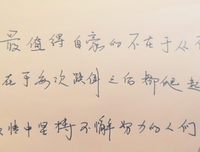 最值得自豪的不在于从不
在于每次跌倒之后都爬起
情中坚持不懈努力的人们